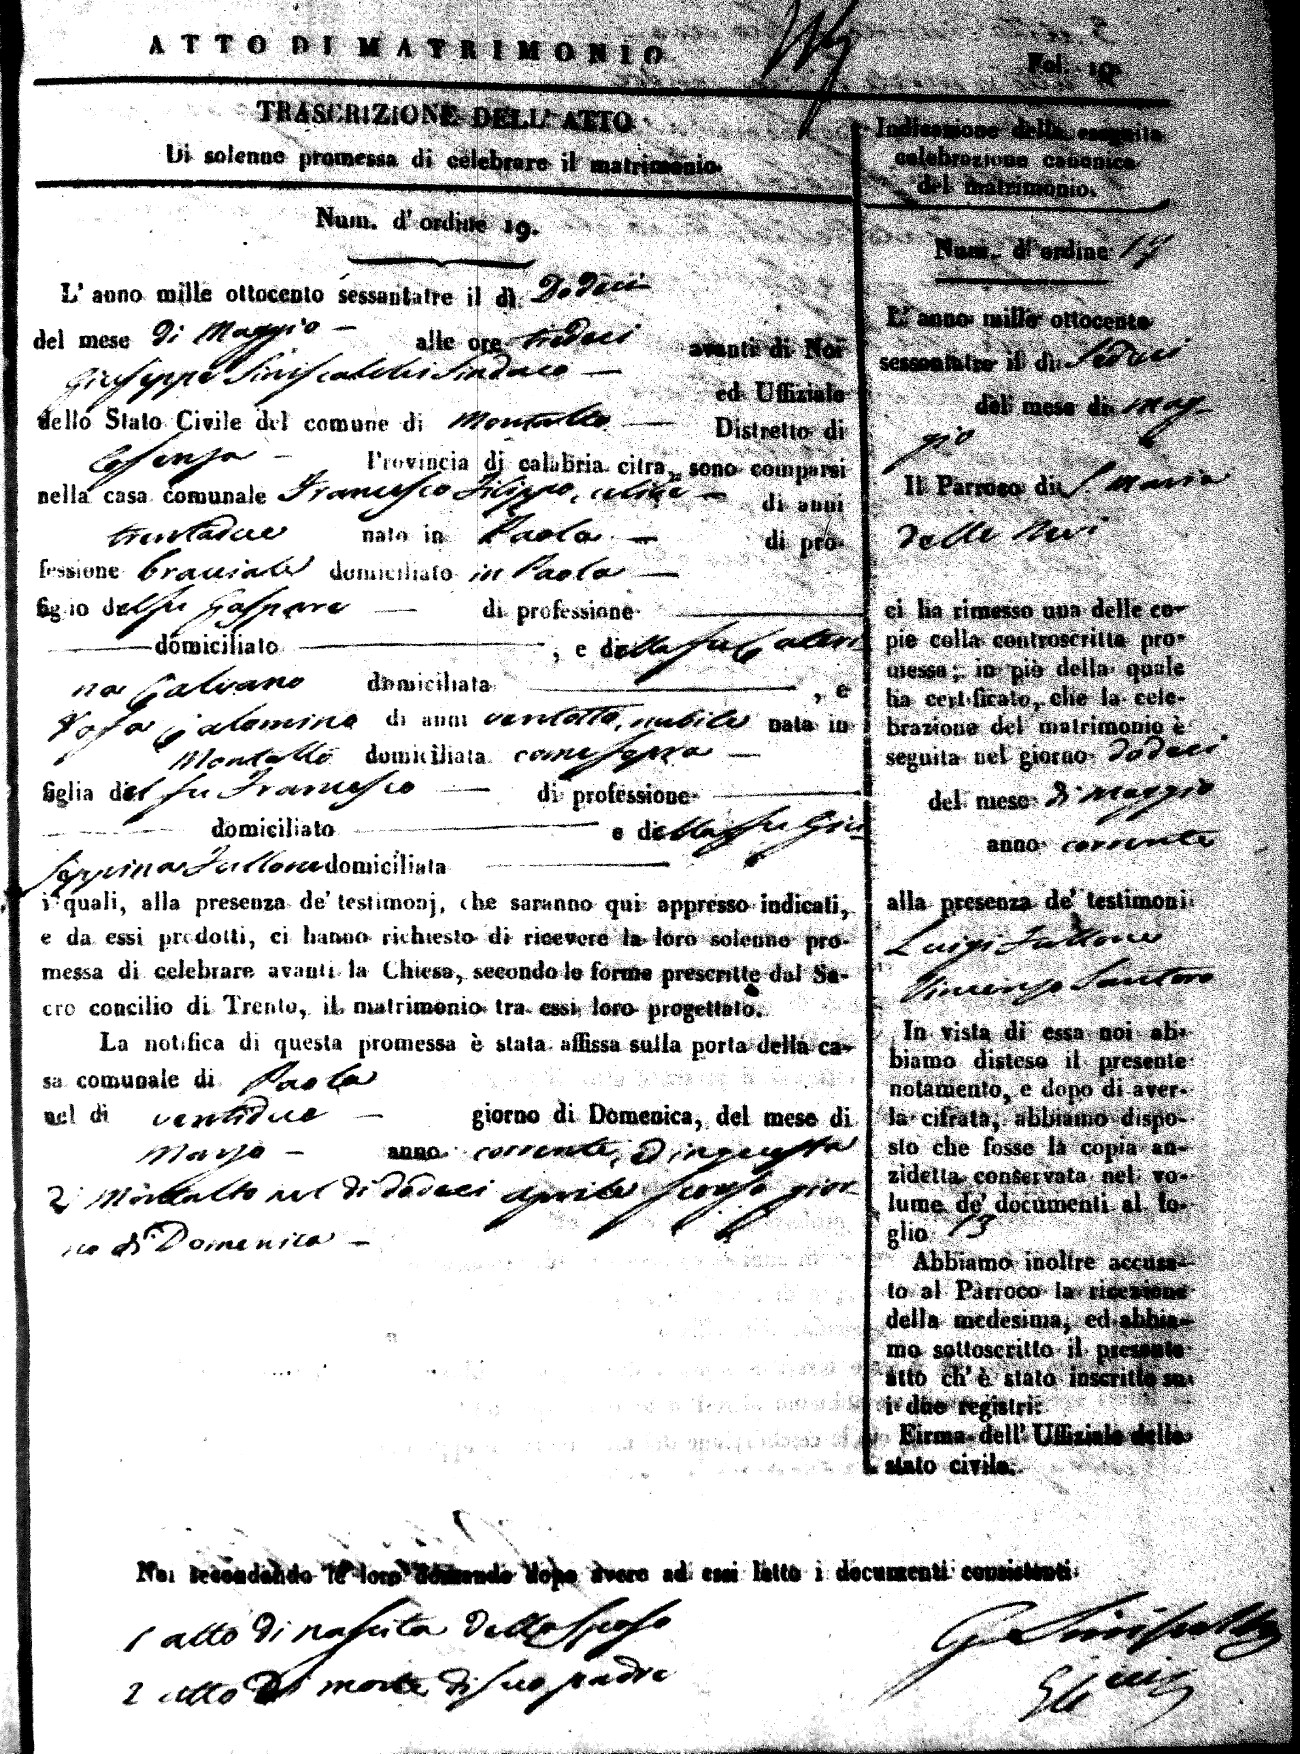 ATTO DI MATRIMONIO
Fol. 19
TRASCRIZIONE DELL' ATTO
Di solenne promessa di celebrare il matrimonio.
Num. d' ordine 19.
L' anno mille ottocento sessantatre il dì Dodeci
del mese di Maggio alle ore tredeci avanti di Noi
Giuseppe Siniscalchi Sindaco
ed Uffiziale
dello Stato Civile del comune di Montalto Distretto di
Cosenza Provincia di calabria citra, sono comparsi
nella casa comunale Francesco Filippo, celibe di anni
trentadue nato in Paola di pro-
fessione bracciale domiciliato in Paola
figlio del fu Gaspare di professione
domiciliato , e della fu Cateri
na Galvano domiciliata , e
Rosa Calomino di anni ventotto, nubile nata in
Montalto domiciliata come sopra
figlia del fu Francesco di professione
domiciliato e della fu Giu
seppina Fullone domiciliata
i quali, alla presenza de' testimonj, che saranno qui appresso indicati,
e da essi prodotti, ci hanno richiesto di ricevere la loro solenne pro-
messa di celebrare avanti la Chiesa, secondo le forme prescritte dal Sa-
cro concilio di Trento, il matrimonio tra essi loro progettato.
La notifica di questa promessa è stata affissa sulla porta della ca-
sa comunale di Paola
nel di ventidue giorno di Domenica, del mese di
Marzo anno corrente,
2 Montalto nel di dodeci aprile scorso gior
no di Domenica
Indicazione della eseguita
celebrazione canonica
del matrimonio.
Num. d' ordine 19
L' anno mille ottocento
sessantatre il di Sedeci
del mese di Mag
gio
Il Parroco di S. Maria
delle Nevi
ci ha rimesso una delle co-
pie colla controscritta pro-
messa; in piò della quale
ha certificato, che la cele-
brazione del matrimonio è
seguita nel giorno dodeci
del mese di Maggio
anno corrente
alla presenza de' testimoni
Luigi Fullone
Vincenzo Santoro
In vista di essa noi ab-
biamo disteso il presente
notamento, e dopo di aver-
la cifrata, abbiamo dispo-
sto che fosse la copia an-
zidetta conservata nel vo-
lume de' documenti al fo-
glio 13
Abbiamo inoltre accusa-
to al Parroco la ricezione
della medesima, ed abbia-
mo sottoscritto il presente
atto ch' è stato inscritto su
i due registri:
Firma dell' Uffiziale dello
stato civile.
Noi secondando le loro domande dopo avere ad essi letto i documenti consistenti
1 atto di nascita dello sposo
2 atto di morte di suo padre